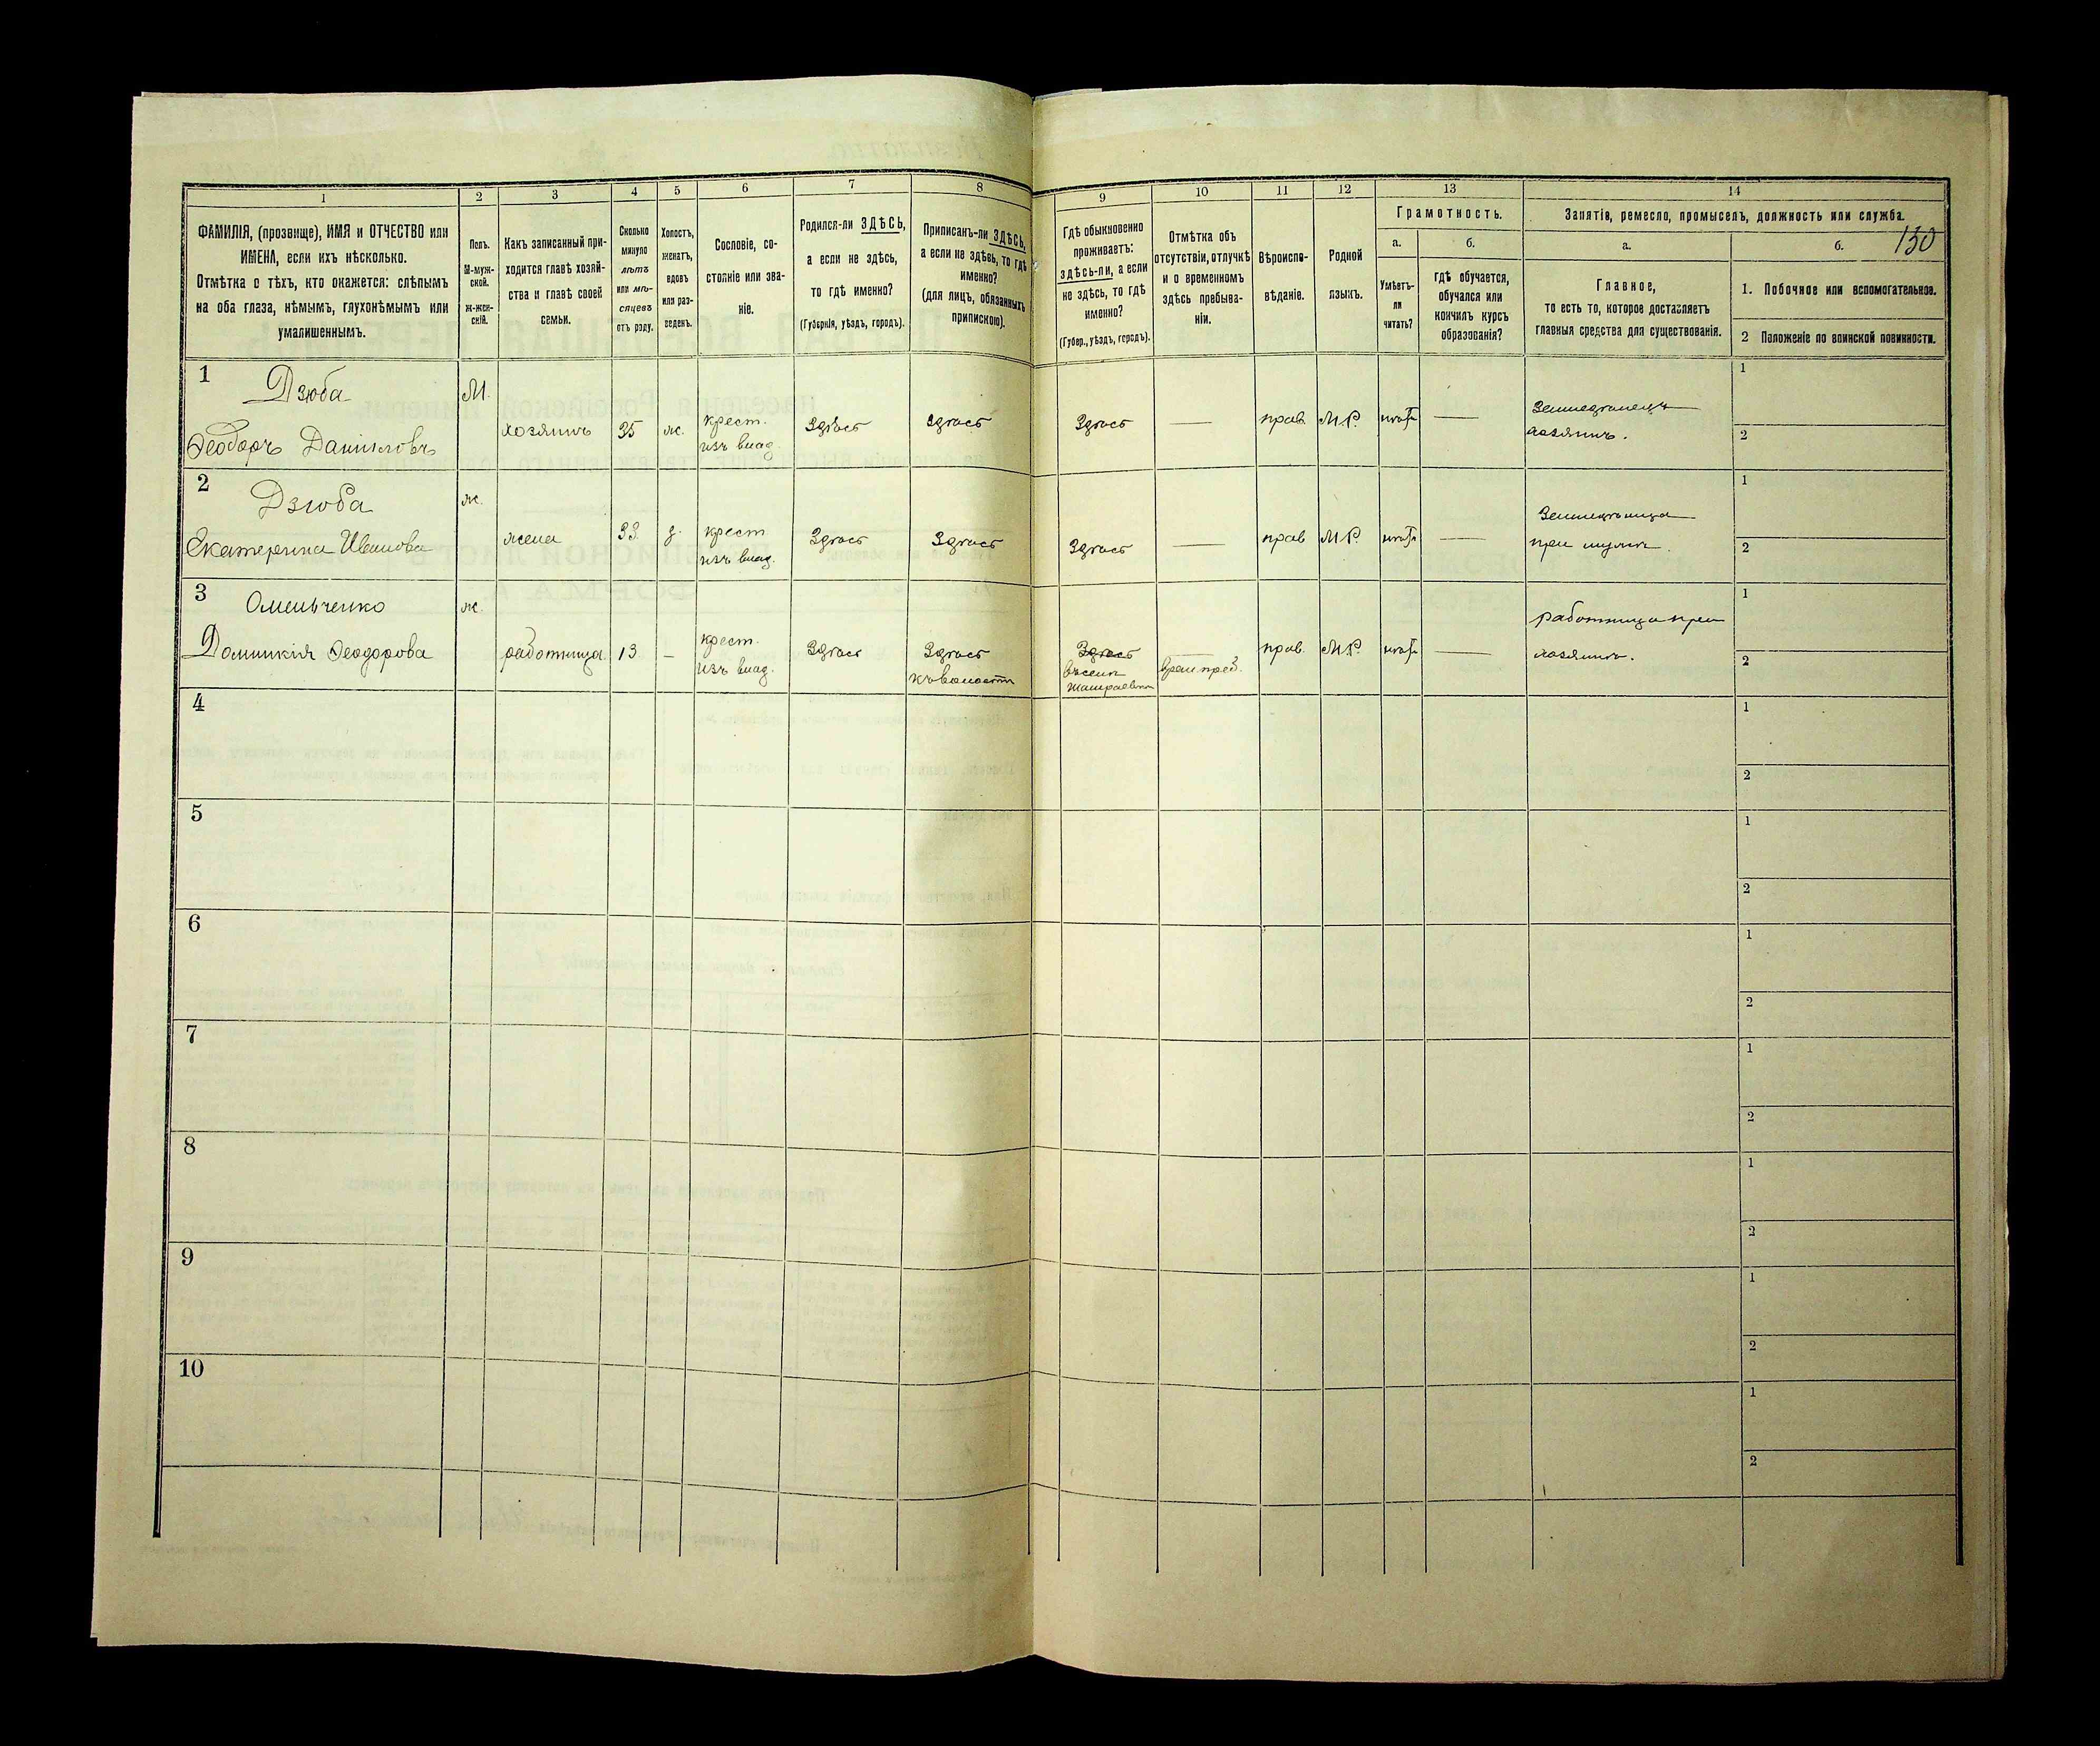 1 2 3 4 5 6 7 8 9 10 11 12 13 14
ФАМИЛІЯ, (прозвище), ИМЯ и ОТЧЕСТВО или
ИМЕНА, если ихъ нѣсколько.
Отмѣтка о тѣхъ, кто окажется: слѣпымъ
на оба глаза, нѣмымъ, глухонѣмымъ или
умалишеннымъ.
Полъ.
М-муж-
ской.
Ж-жен-
скій.
Какъ записанный при-
ходится главѣ хозяй-
ства и главѣ своей
семьи.
Сколько
минуло
лѣтъ
или мѣ-
сяцевъ
отъ роду.
Холостъ,
женатъ,
вдовъ
или раз-
веденъ.
Сословіе, со-
стояніе или зва-
ніе.
Родился-ли ЗДѢСЬ,
а если не здѣсь,
то гдѣ именно?
(Губернія, уѣздъ, городъ).
Приписанъ-ли ЗДѢСЬ,
а если не здѣсь, то гдѣ
именно?
(для лицъ, обязанныхъ
припискою).
Гдѣ обыкновенно
проживаетъ:
здѣсь-ли, а если
не здѣсь, то гдѣ
именно?
(Губер., уѣздъ, городъ).
Отмѣтка объ
отсутствіи, отлучкѣ
и о временномъ
здѣсь пребыва-
ніи.
Вѣроиспо-
вѣданіе.
Родной
языкъ.
Грамотность.
а.
Умѣетъ-
ли
читать?
б.
гдѣ обучается,
обучался или
кончилъ курсъ
образованія?
Занятіе, ремесло, промыселъ, должность или служба.
а.
Главное,
то есть то, которое доставляетъ
главныя средства для существованія.
б.
130
1. Побочное или вспомогательное.
2 Положеніе по воинской повинности.
1 Дзюба М. 1
Ѳеодоръ Даниловъ хозяинъ 35 ж. крест. Здѣсь Здѣсь Здѣсь — прав. М.Р. нѣтъ — Земледѣлецъ
изъ влад. хозяинъ. 2
2 Дзюба ж. 1
Екатерина Иванова жена 33 з. крест Здѣсь Здѣсь Здѣсь — прав М.Р. нѣтъ — Земледѣлица
изъ влад. при мужѣ. 2
3 Омельченко ж. 1
Домникія Ѳеодорова работница 13 — крест. Здѣсь Здѣсь Здѣсь прав. М.Р. нѣтъ — работница при
изъ влад. къ волости хозяинѣ. 2
4 1
2
5 1
2
6 1
2
7 1
2
8 1
2
9 1
2
10 1
2